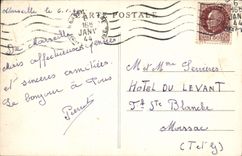 Marseille le
CARTE POSTALE
16H
JANV
44
De Marseille
affectueuses pensées
et sincères amitiés.
Le bonjour à tous
Pierrot
M et Mme Serrières
HOTEL DU LEVANT
Ste Blanche
Moissac
(T et G)